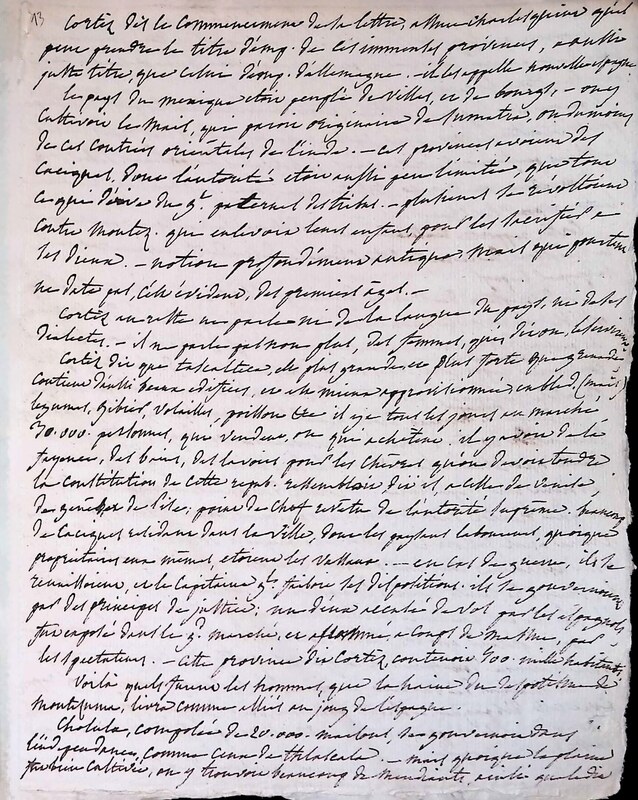 13
Cortez dit le commencement de sa lettre, a l'emp. charles quint qu'il
peut prendre le titre d'emp. de ces immenses provinces, a aussi
juste titre, que celui d'emp. d'allemagne. - il les appelle nouvelle espagne
le pays du mexique etoit peuplé de villes, et de bourgs, - on y
cultivoit le maïs, qui paroit originaire de sumatra, ou du moins
de ces contrées orientales de l'inde. - ces provinces avoient des
caciques, dont l'autorité etoit aussi peu limitée, que tout
ce qui dérive du g.t paternel des tribus. - plusieurs se revoltèrent
contre montez. qui enlevoit leurs enfans pour les sacrifier à
ses dieux. - notion profondément antique, mais qui pourtant
ne date pas, c'est évident, des premiers ages. -
Cortez au reste ne parle ni de la langue du pays, ni de ses
dialectes. - il ne parle pas non plus, des femmes,
Cortez dit que tascaltecal, est plus grande, et plus forte que grenade
contient d'aussi beaux edifices, et est mieux approvisionnée en bled, (maïs)
legumes, gibiers, volailles, poissons &c il y a tous les jours au marché
30.000 personnes, qui vendent, ou qui achètent. il y avoit de la
fayence, des bains, des lavoirs pour les
la constitution de cette repub. ressembloit dit il, a celle de venise,
de gènes, de pise; point de chef revetu de l'autorité suprême. beaucoup
de caciques residant dans la ville, dont les paysans laboureurs, quoique
proprietaires eux mêmes, etoient les vassaux. - en cas de guerre, ils se
réunissoient, et le capitaine g.l faisoit ses dispositions. ils se gouvernoient
par des principes de justice; un d'eux accusé de vol par les espagnols
fut exposé dans le g.d marché, et assommé, a coups de massue, par
les spectateurs. - cette province dit Cortez, contenoit 500 mille habitants,
Voilà quels furent les hommes, que la haine du despotisme de
montezuma, livra comme alliés au joug de l'espagne.
Cholula, composée de 20.000. maisons, se gouvernoit dans
l'indépendance, comme ceux de thlascala. - mais quoique la plaine
fut bien cultivée, on y trouvoit beaucoup de mendiants, ainsi que le dit